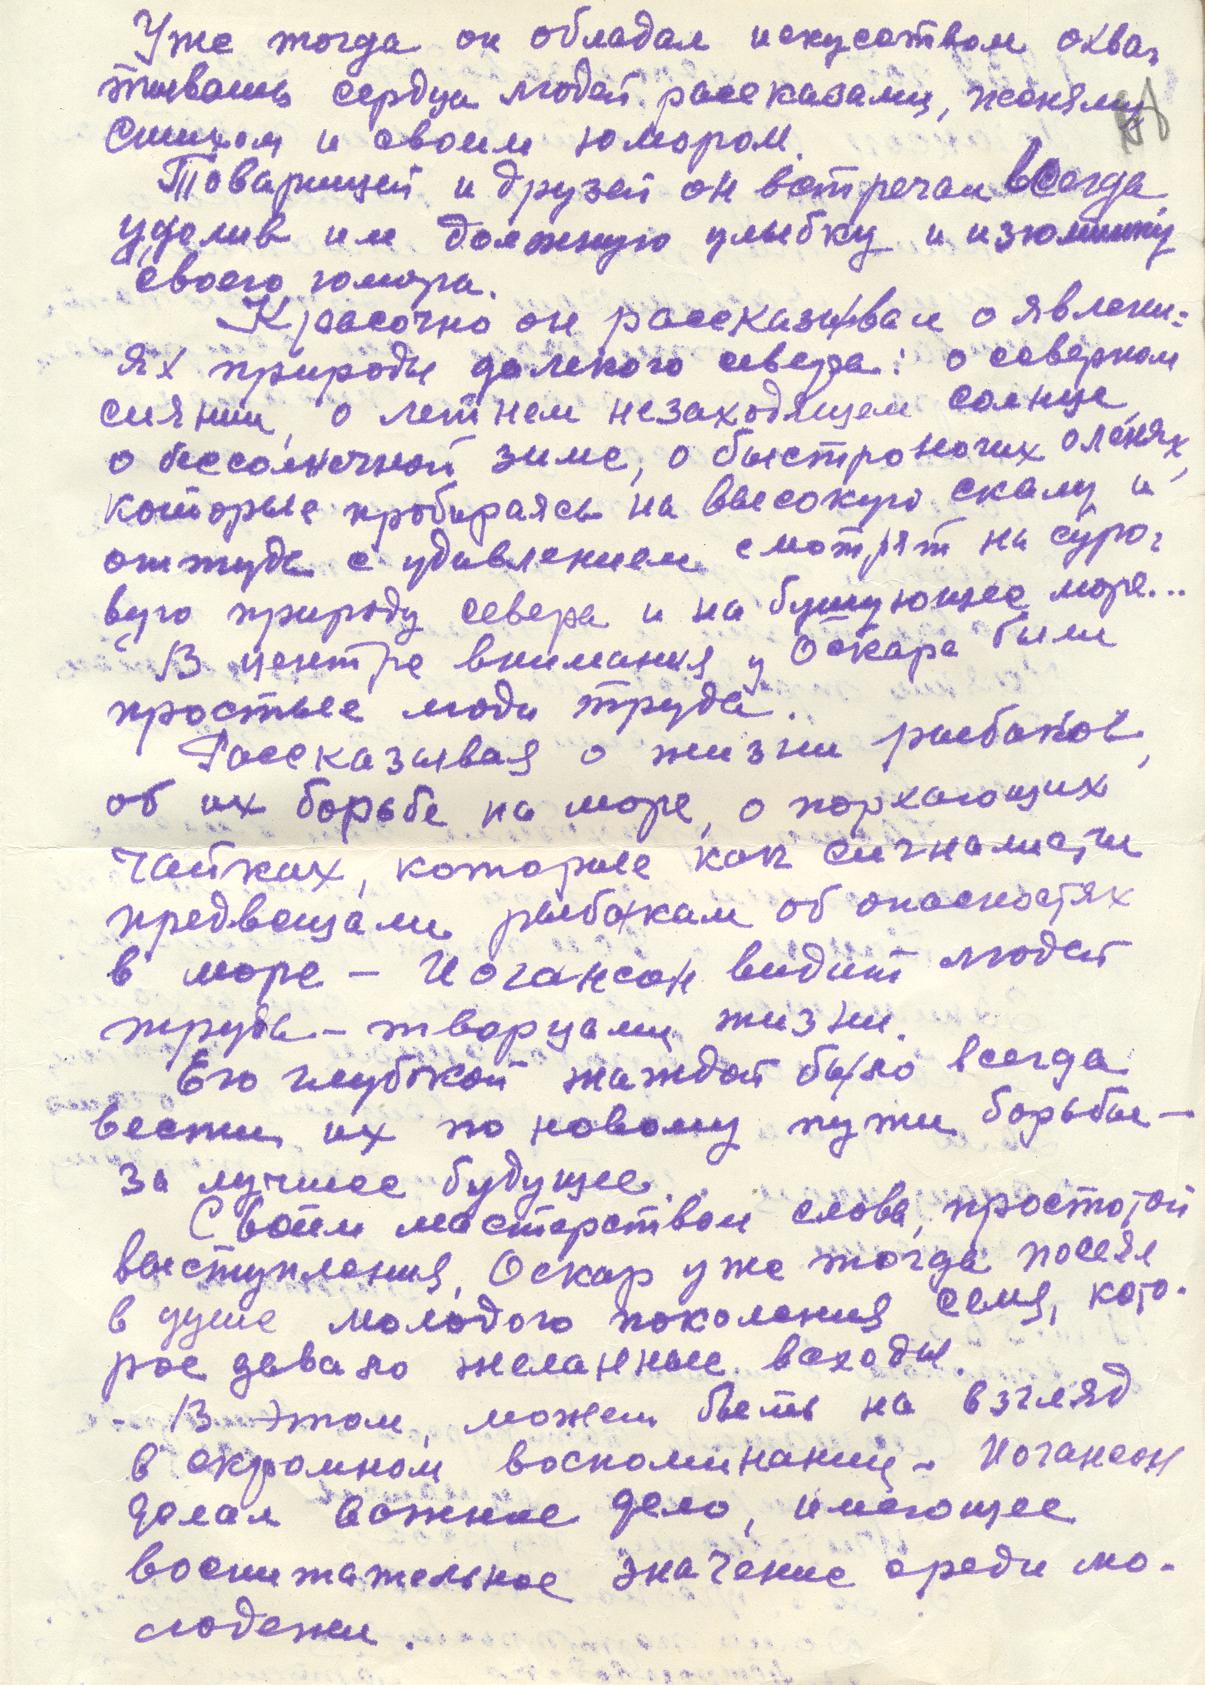 Уже тогда он обладал искусством охва-
тывать сердца людей рассказами, 
стихом и своим юмором.
Товарищей и друзей он встречал всегда
уделив им должную улыбку и изюминку
своего юмора.
Красочно он рассказывал о явлени-
ях природы далекого севера: о северном
сиянии, о летнем незаходящем солнце,
о бессолнечной зиме, о быстроногих оленях,
которые пробираясь на высокую скалу и
оттуда с удивлением смотрят на суро-
вую природу севера и на бушующее море...
В центре внимания у Оскара были
простые люди труда.
Рассказывая о жизни рыбаков,
об их борьбе на море, о порхающих
чайках, которые как сигналисты
предвещали рыбакам об опасностях
в море – Иогансон видит людей
труда – творцами жизни.
Его глубокой жаждой было всегда
вести их по новому пути борьбы –
за лучшее будущее.
Своим мастерством слова, простотой
выступления, Оскар уже тогда посеял
в душе молодого поколения семя, кото-
рое давало желанные всходы.
- В этом, может быть на взгляд
в скромном воспоминании – Иогансон
делал важное дело, имеющее
воспитательное значение среди мо-
лодежи.